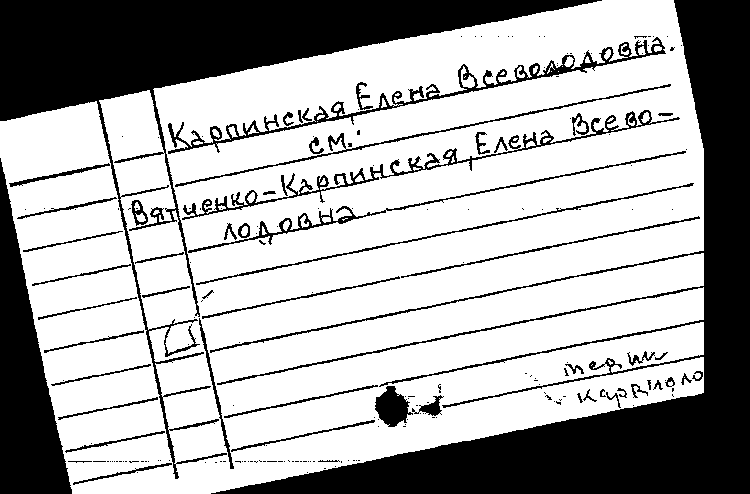 Карпинская, Елена Всеволодовна.
см.:
Вятченко-Карпинская, Елена Всево-
лодовна
терин
кардиоло